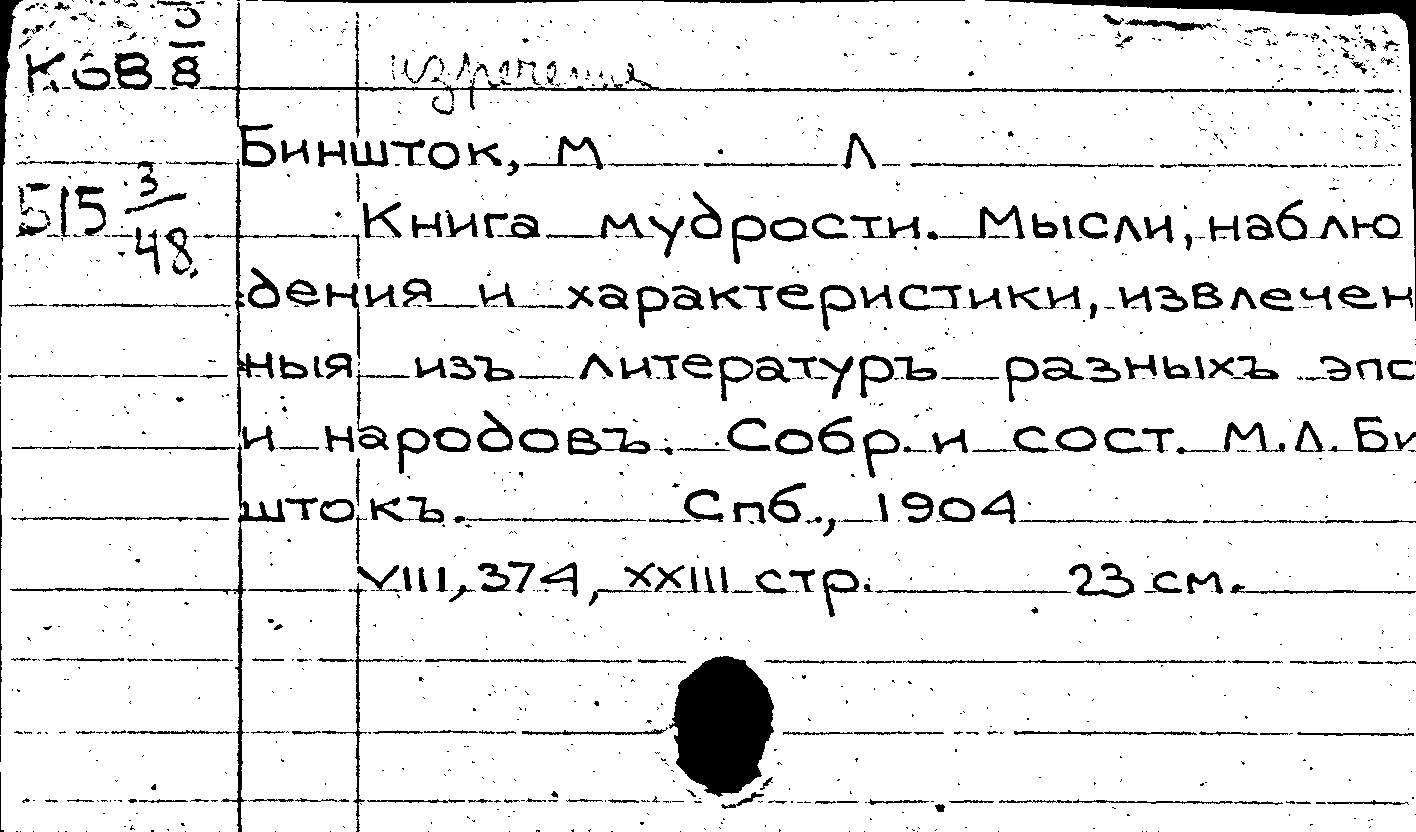 К 68 3/8
изречение
Биншток, М Л
515 3/48
Книга мудрости. Мысли, наблю
дения и характеристики, извлечен
ныя изъ литературъ разныхъ эпо
и народовъ. Собр. и сост. М. Л. Би
штокъ. Спб., 1904
VIII, 374, XXIII стр. 23 см.